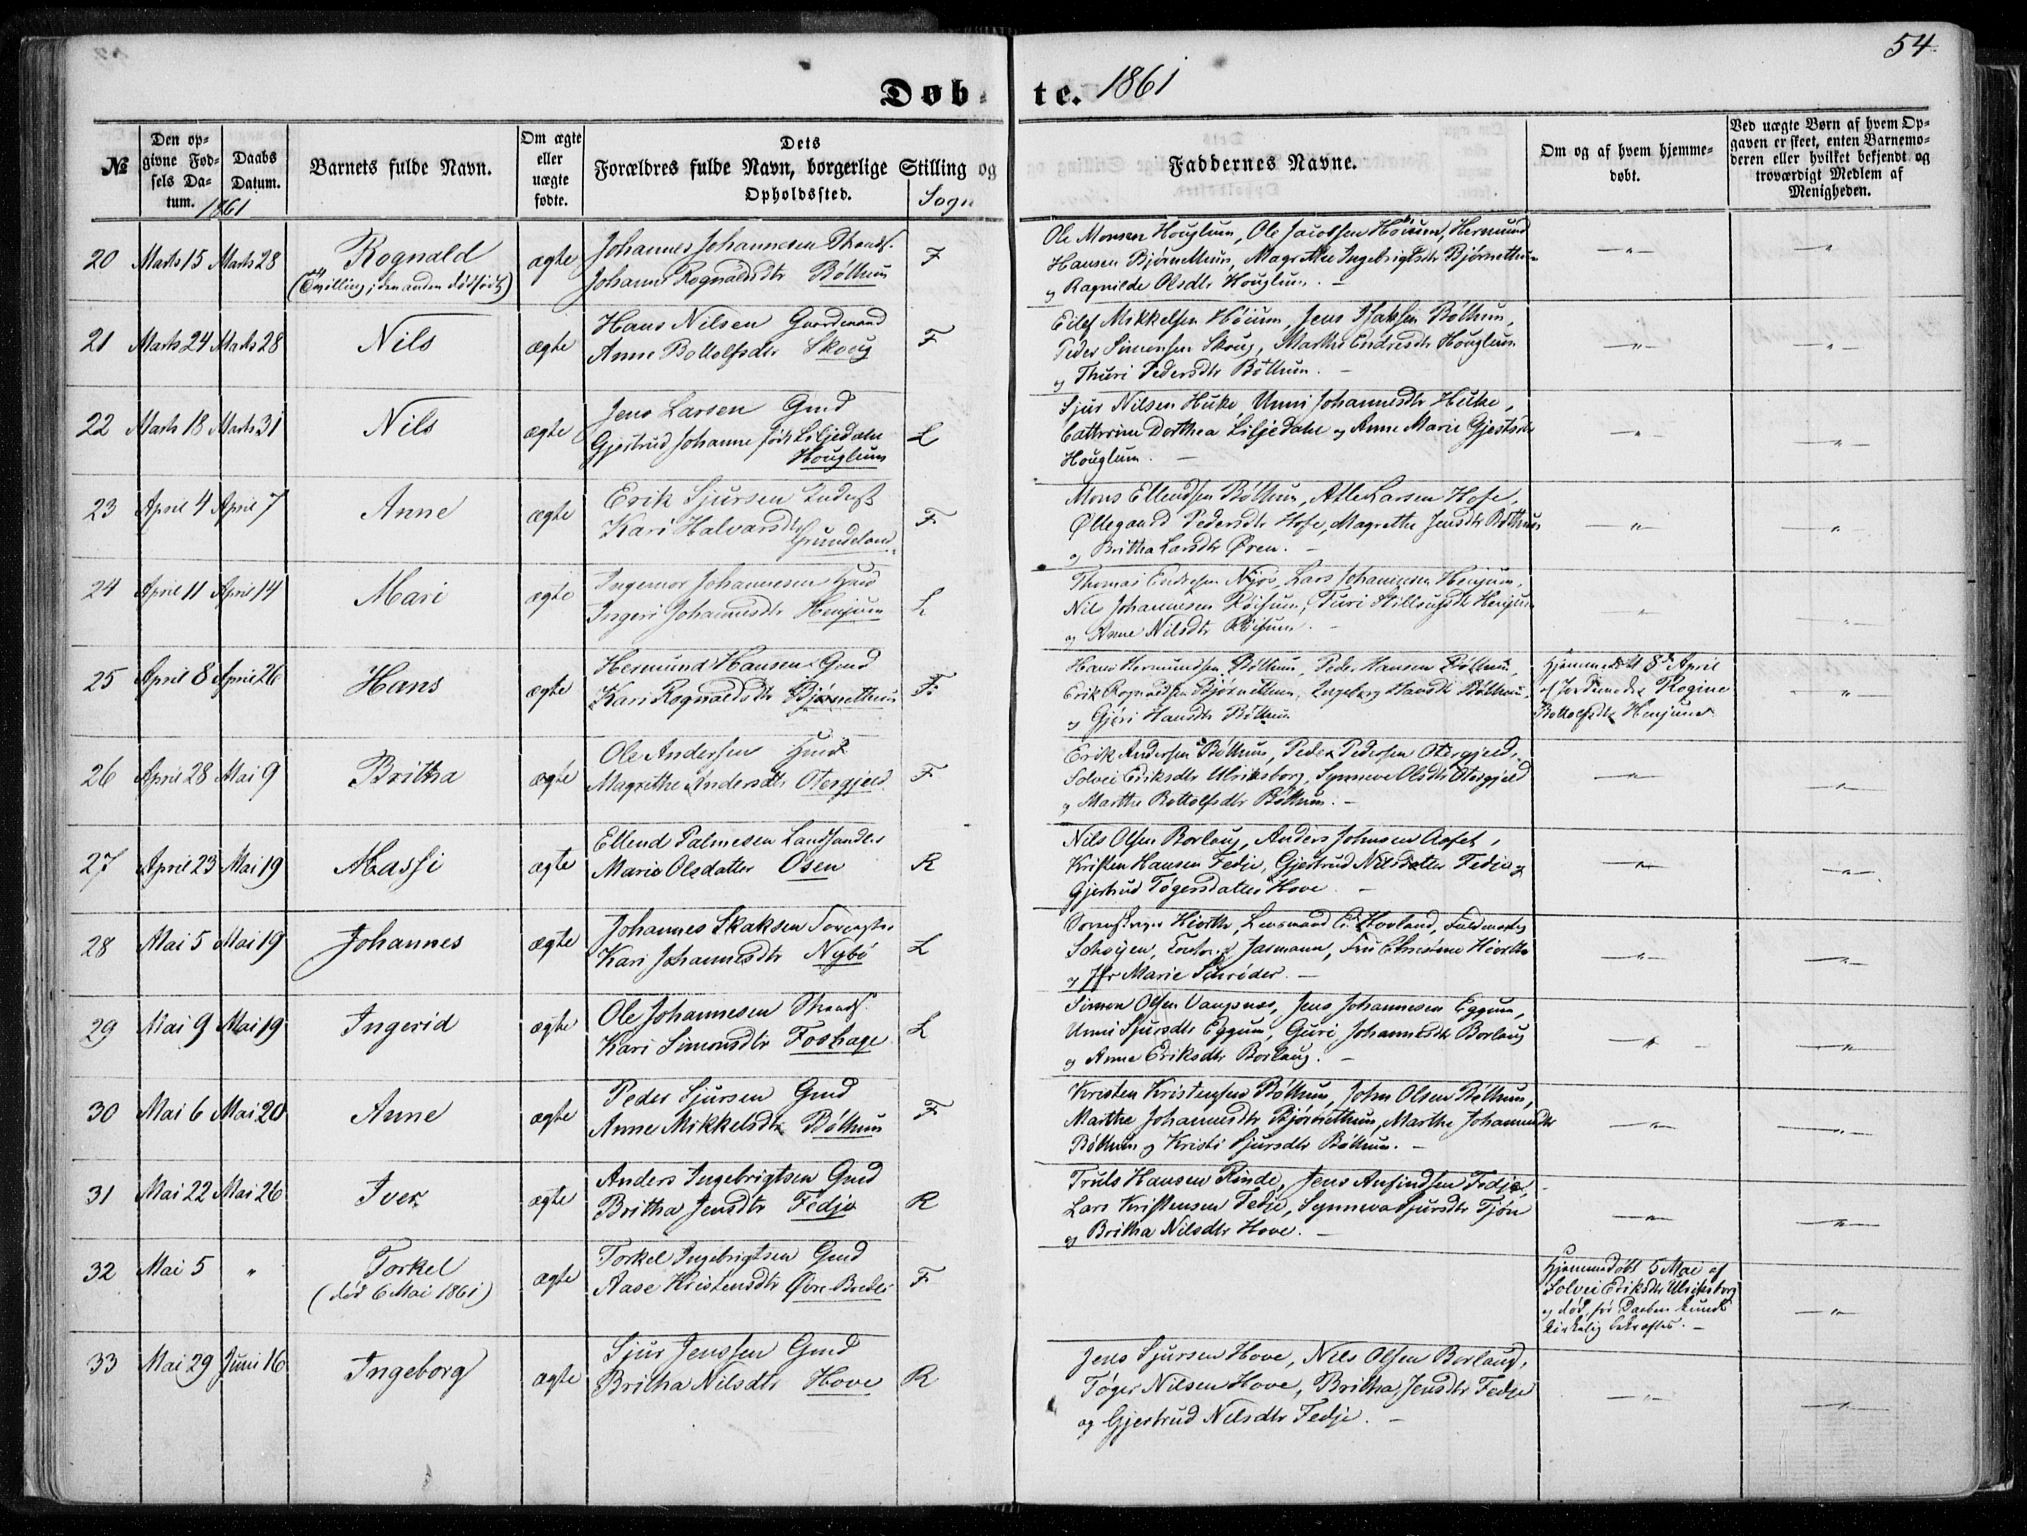 54.
Døbte. 1861
№
Den opgivne Fødsels Datum.
Daabs Datum.
Barnets fulde Navn.
Om ægte eller uægte fødte.
Dets Forældres fulde Navn, borgerlige Stilling og Opholdssted.
Sogn
Faddernes Navne.
Om og af hvem hjemmedøbt.
Ved uægte Børn af hvem Opgaven er skeet, enten Barnemoderen eller hvilket bekjendt og troværdigt Medlem af Menigheden.
1861
20 Marts 15 Marts 28 Rognald ægte Johannes Johannesen Strands. F
(Tvilling; den anden dødfødt) Johanne Rognaldsdtr Böthun
Ole Monsen Houglum, Ole Jacobsen Höium, Hermund
Hansen Bjørnethun, Magrethe Ingebrigtsdtr Bjørnethun
og Ragnilde Olsdtr Houglum. — " — — " —
21 Marts 24 Marts 28 Nils ægte Hans Nilsen Gaardmand F
Anne Bottolfsdtr Skoug
Eilef Mikkelsen Höium, Jens Isaksen Böthun,
Peder Simonsen Skoug, Marthe Endresdtr Houglum
og Thuri Pedersdtr Böthun. — " — — " —
22 Marts 18 Marts 31 Nils ægte Jens Larsen Gmd L
Gjertrud Johanne født Liljedahl
Houglum
Sjur Nilsen Huke, Unni Johannesdtr Huke,
Cathrine Dorthea Liljedahl og Anne Marie Gjestsdtr
Houglum. — " — — " —
23 April 4 April 7 Anne ægte Erik Sjursen Inderst F
Kari Halvarsdtr
Grundeland
Mons Ellendsen Böthun, Atle Larsen Hofe,
Øllegaard Pedersdtr Hofe, Magrethe Jensdtr Böthun
og Britha Larsdtr Øren. — " — "
24 April 11 April 14 Mari ægte Ingemor Johannesen Gmd L
Ingeri Johannesdtr Henjum
Thomas Endresen Njøs, Lars Johannesen Henjum,
Nils Johannesen Röisum, Turi Henjum
og Anne Nilsdtr Röisum. — " — — " —
25 April 8 April 26 Hans ægte Hermund Hansen Gmd F.
Kari Rognaldsdtr Bjørnethun
Hans Hermundsen Böthun, Peder Hansen Böthun,
Erik Rognaldsen Bjørnethun, Ingeborg Hansdtr Böthun
og Gjøri Hansdtr Böthun
Hjemmedøbt 8de April
af Jordemoder Rogine
Bottolfsdtr Henjum — " —
26 April 28 Mai 9 Britha ægte Ole Andersen Gmd F
Magrethe Andersdtr Otergjerd
Erik Andersen Böthun, Peder Pedersen Otergjerd,
Solvei Eriksdtr Ulriksborg, Synneve Olsdtr Otergjerd
og Marthe Bottolfsdtr Böthun. — — " — — " —
27 April 23 Mai 19 Massi ægte Ellend Palmesen Landhandler R
Marie Olsdatter Osen
Nils Olsen Borlaug, Anders Johnsen Aafet,
Kristen Hansen Fedje, Gjertrud Nilsdatter Fedje og
Gjertrud Tøgersdatter Hove. — — " — — " —
28 Mai 5 Mai 19 Johannes ægte Johannes Skaksen L
Kari Johannesdtr Nybö
Hiorth, Lensmand Hovland, Fuldmægtig
Schøyen, Jasmann, Fru Christine Hiorth
og Jfr Marie Schröder. — — " — — " —
29 Mai 9 Mai 19 Ingerid ægte Ole Johannesen Strands. L
Kari Simonsdtr Foshage
Simon Olsen Vangsnes, Jens Johannesen Eggum,
Unni Sjursdtr Eggum, Guri Johannesdtr Borlaug
og Anne Eriksdtr Borlaug. — — " — — " —
30 Mai 6 Mai 20 Anne ægte Peder Sjursen Gmd F
Anne Mikkelsdtr Böthun
Kristen Kristensen Böthun, John Olsen Böthun,
Marthe Johannesdtr Bjørnethun, Marthe Johannesdtr
Böthun og Kristi Sjursdtr Böthun. — — " — — " —
31 Mai 22 Mai 26 Iver ægte Anders Ingebrigtsen Gmd R
Britha Jensdtr Fedje
Truls Hansen Rinde, Jens Anfindsen Fedje,
Lars Kristensen Fedje, Synneva Sjursdtr Tjøn
og Britha Nilsdtr Hove. — — " — — " —
32 Mai 5 " Torkel ægte Torkel Ingebrigtsen Gmd F
(død 6 Mai 1861) Aase Kristensdtr Øvre-Brekke
Hjemmedøbt 5 Mai af
Solvei Eriksdtr Ulriksborg
og død, før Daaben kunde
kirkelig bekræftes. — — " —
33 Mai 29 Juni 16 Ingeborg ægte Sjur Jenssen Gmd R
Britha Nilsdtr Hove
Jens Sjursen Hove, Nils Olsen Borlaug,
Tøger Nilsen Hove, Britha Jensdtr Fedje
og Gjertrud Nilsdtr Fedje. — — " — — " —